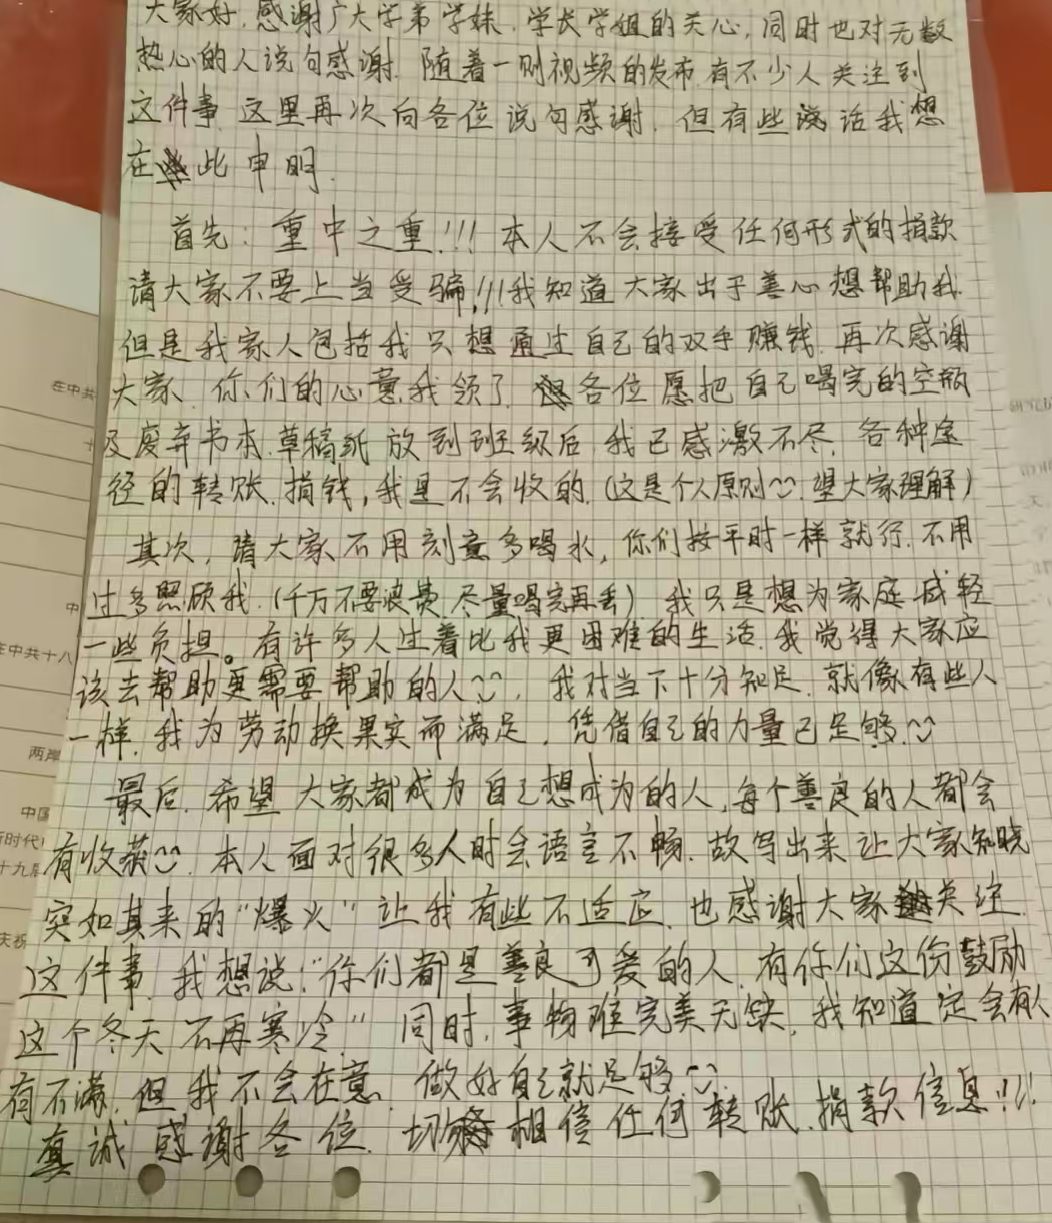 大家好,感谢广大学弟学妹,学长学姐的关心,同时也对无数
热心的人说句感谢.随着一则视频的发布,有不少人关注到
这件事,这里再次向各位说句感谢,但有些话我想
在此申明.
首先:重中之重!!!本人不会接受任何形式的捐款
请大家不要上当受骗!!!我知道大家出于善心想帮助我.
但是我家人包括我只想通过自己的双手赚钱.再次感谢
大家.你们的心意我领了.各位愿把自己喝完的空瓶
及废弃书本.草稿纸放到班级后,我已感激不尽.各种途
径的转账.捐钱,我是不会收的.(这是个人原则.望大家理解)
其次,请大家不用刻意多喝水,你们按平时一样就行.不用
过多照顾我.(千万不要浪费,尽量喝完再丢)我只是想为家庭减轻
一些负担。有许多人过着比我更困难的生活.我觉得大家应
该去帮助更需要帮助的人.我对当下十分知足.就像有些人
一样.我为劳动换果实而满足.凭借自己的力量已足够.
最后.希望大家都成为自己想成为的人,每个善良的人都会
有收获.本人面对很多人时会语言不畅.故写出来让大家知晓
突如其来的“爆火”让我有些不适应.也感谢大家关注
这件事.我想说:“你们都是善良可爱的人.有你们这份鼓励
这个冬天不再寒冷.”同时.事物难完美无缺.我知道定会有人
有不满.但我不会在意.做好自己就足够.
真诚感谢各位.切相信任何转账.捐款信息!!!
在中共
中
在中共十八
两岸
中国
新时代
十九届
庆祝